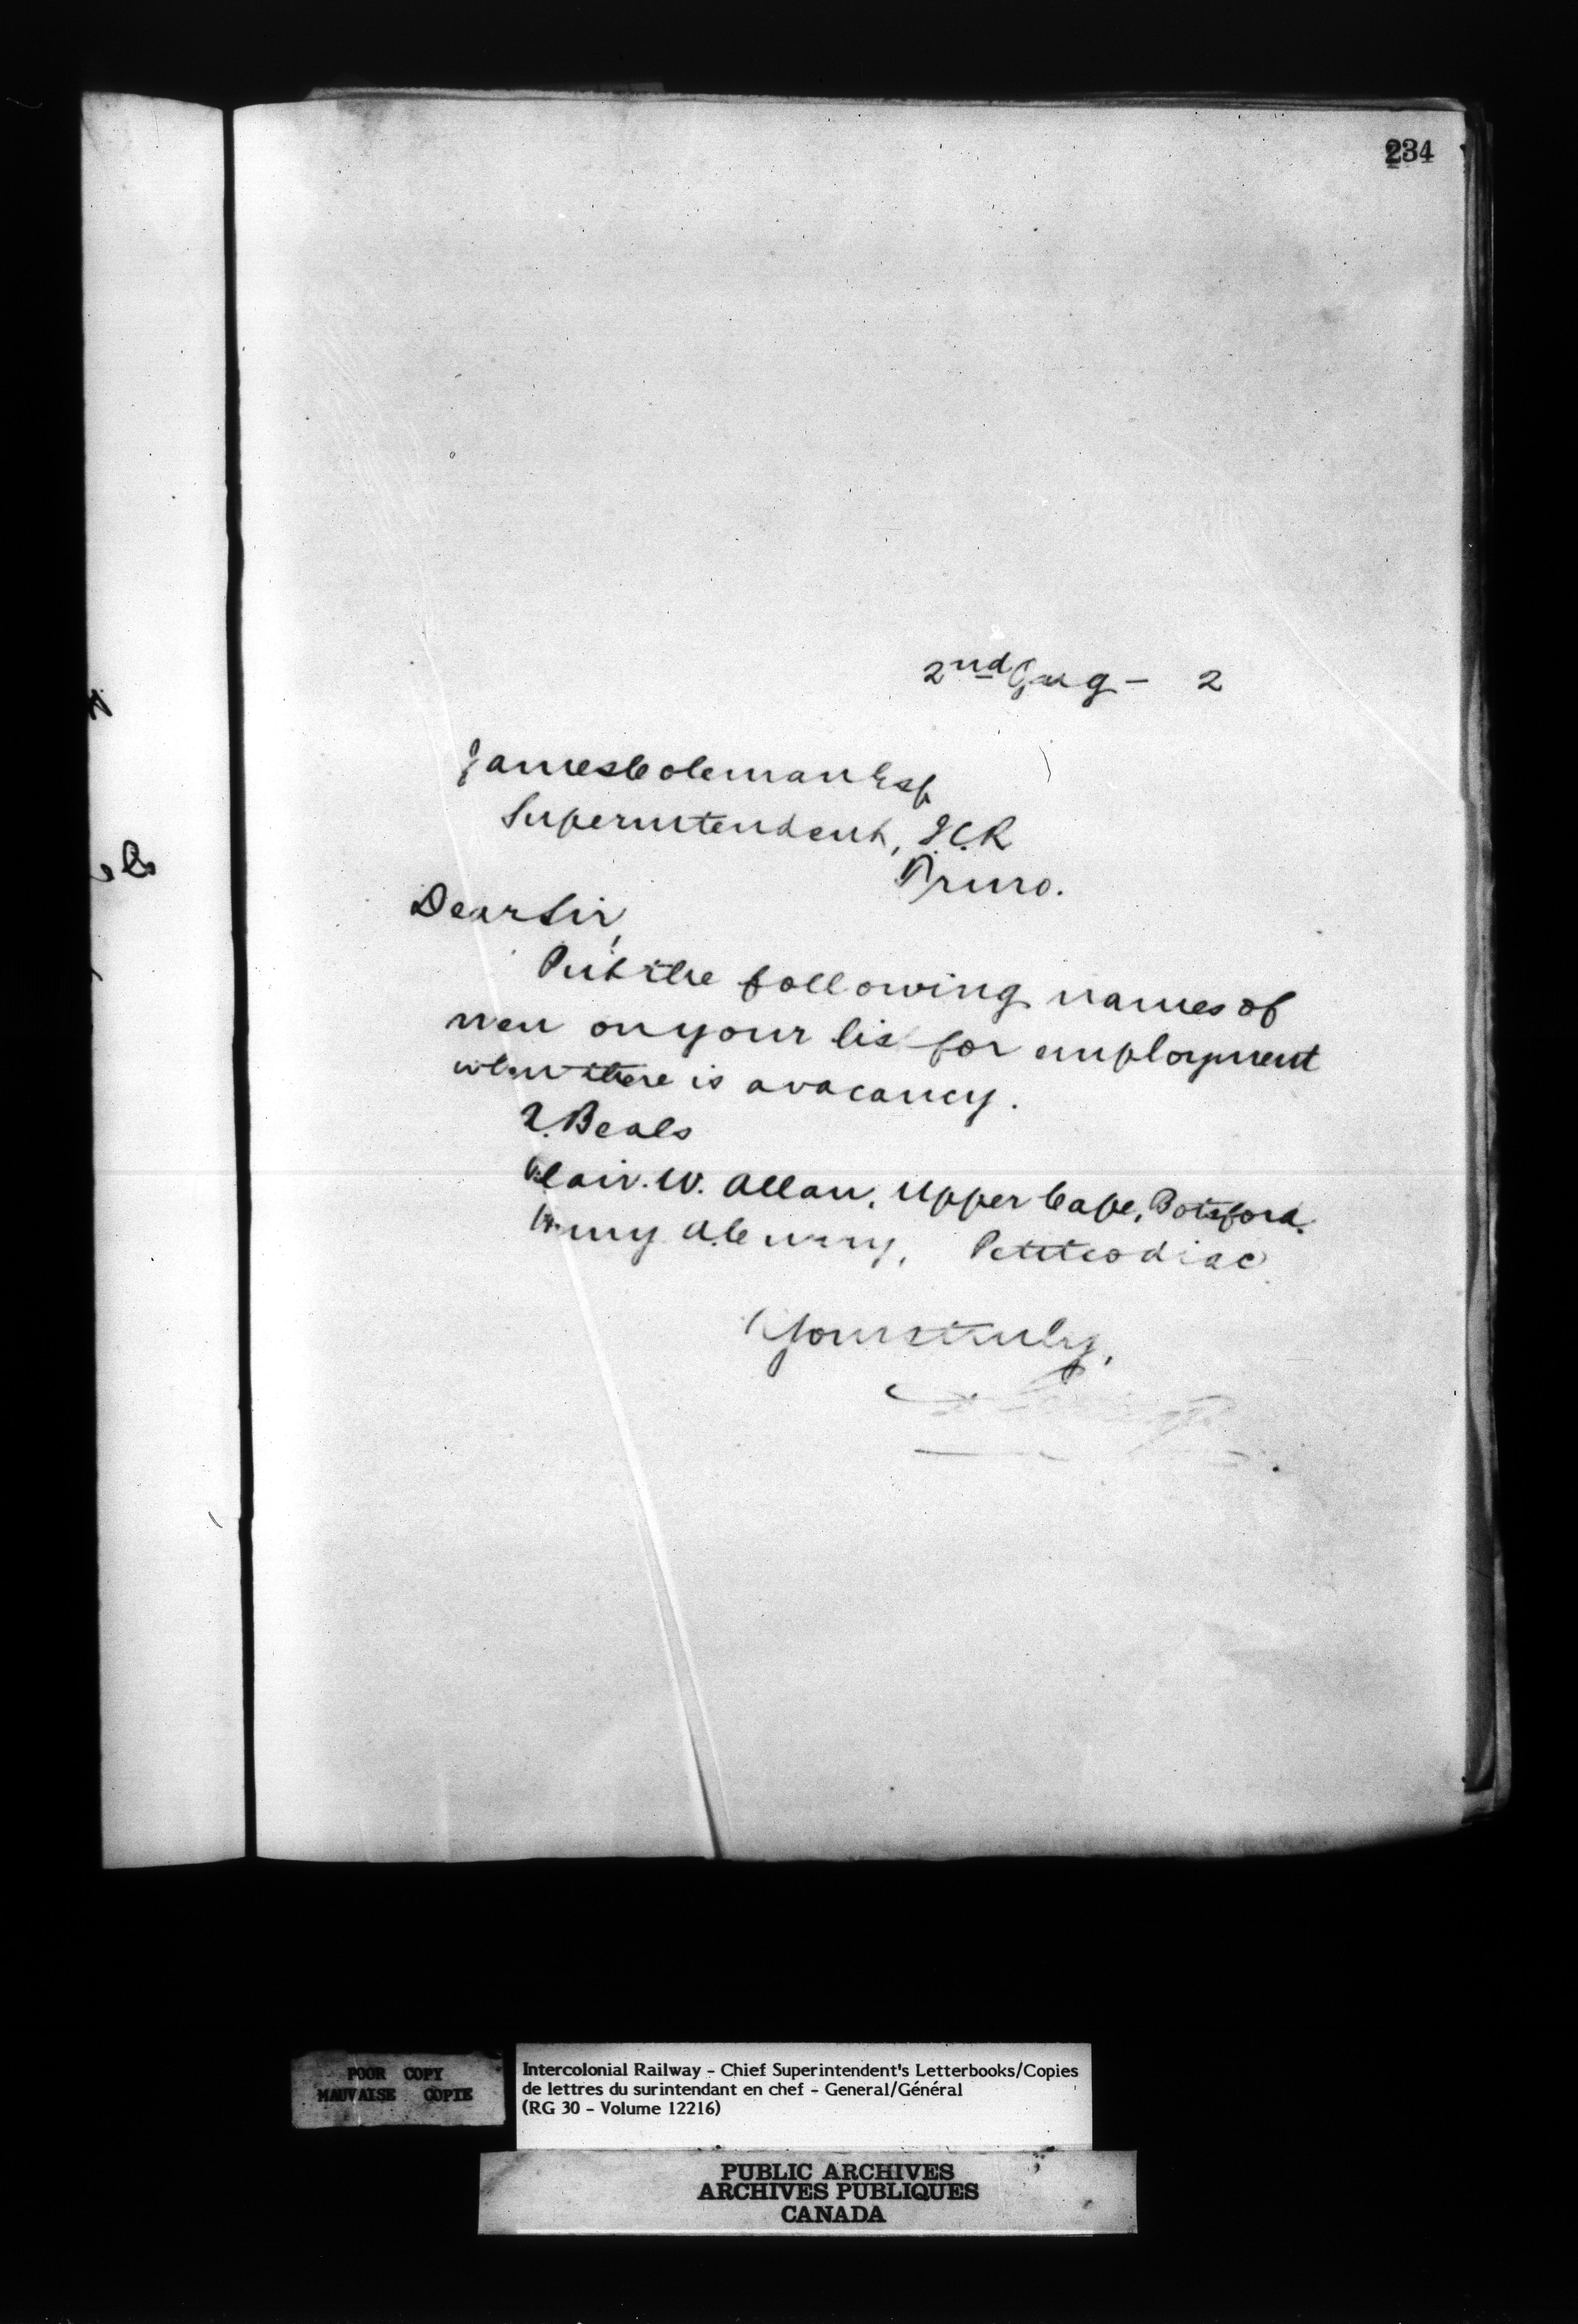 234
2nd Aug - 2
James Coleman Esq
Superintendent, I.C.R
Truro.
Dear Sir,
Put the following names of
men on your list for employment
when there is a vacancy.
Beals
Clair. W. Allan, Upper Cape, Botsford.
Petitcodiac
Yours truly,
POOR COPY
MAUVAISE COPIE
Intercolonial Railway - Chief Superintendent's Letterbooks/Copies
de lettres du surintendant en chef - General/Général
(RG 30 - Volume 12216)
PUBLIC ARCHIVES
ARCHIVES PUBLIQUES
CANADA